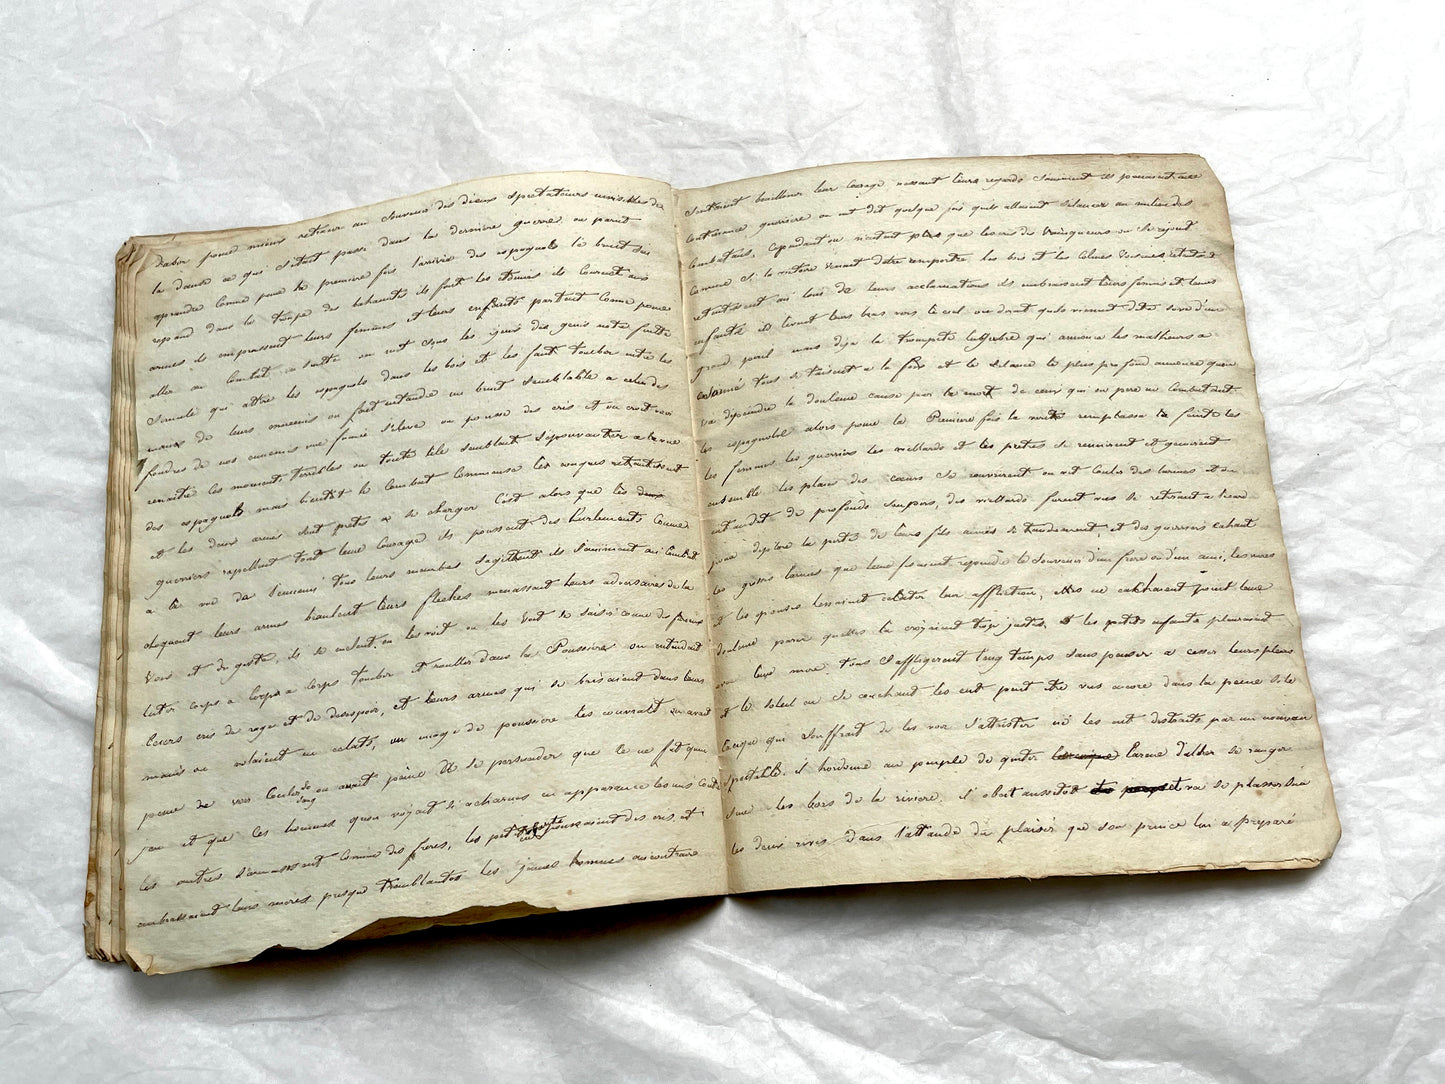 pour mieux retracer au souvenir des dieux spectateurs invisibles de
la danse ce qui s'étoit passé dans la derniere guerre on parut
aprendre comme pour la premiere fois l'arrivée des espagnols le bruit s'en
repand dans la troupe des tahanits ils font les étonnés ils courent aux
armes ils embrassent leurs femmes et leurs enfants partent comme pour
aller au combat on voit sous les yeux des
qui attire les espagnols dans les bois et les fait tomber entre les
mains de leurs ennemis on fait entendre un bruit semblable a celui des
foudres de nos ennemis une fumée s'eleve on pousse des cris et on croit voir
renaitre ces moments terribles ou toute l'ile sembloit s'epouvanter a la vue
des espagnols mais bientôt le combat commence les conques retentissent
et les deux armés sont prets a se charger C'est alors que les
guerriers rapellent tout leur courage ils poussent des hurlements comme
a la vue de l'ennemi tous leurs membres s'agittent ils s'animent au combat
choquent leurs armes branlent leurs fleches menassent leurs adversaires de la
voix et du geste, ils se melent, on les voit se saisir comme des
lutter corps a corps tomber et rouller dans la Poussiere on entendait
leurs cris de rage et de desespoir, et leurs armes qui se brisaient dans leurs
mains ou volaient en eclats, un nuage de poussiere les couvrait on avait
peine de voir couler du sang on avait peine a se persuader que ce ne fut qu'un
jeu et que ces hommes qu'on voyait s'acharner en apparence les uns contre
les autres s'aimassent comme des freres, les petits enfants poussaient des cris, et
embrassaient leurs meres presque tremblantes les jeunes hommes au contraire
sentaient bouillonner leur courage naissant leurs regards s'animent ils prenaient une
contenance guerriere on eut dit quelque fois qu'ils allaient s'elancer au milieu des
combattants, cependant on n'entend plus que les cris de vainqueurs on se rejouit
comme si la victoire venait d'être remportée, les bois et les
retentissent au loin de leurs acclamations ils embrassent leurs femmes et leurs
enfants ils levent leurs bras vers le ciel qu'ils viennent d'être d'un
grand peril mais deja la trompete lugubre qui annonce les malheurs a
tous se taisent a la fois et le silence le plus profond annonce qu'on
va depeindre la douleur causé par la mort de ceux qui on peri en combattant
les espagnols alors pour la Premiere fois la verité remplassa la feinte les
les femmes les guerriers les vieillards et les pretres se reunirent et gemirent
ensemble les plaies des cœurs se rouvrirent on vit couler des larmes et on
entendit de profonds soupirs, des vieillards furent vus se retirant a l'ecart
pour deplorer la perte de leurs fils aimés si tendrement, et des guerriers cachant
les grosses larmes que leur faisoient repandre le souvenir d'un frere ou d'un ami, les meres
et les epouses laissaient eclater leur affliction, elles ne cachaient point leur
douleur parce qu'elles la croyaient trop juste, et les petits enfants pleuraient
avec leurs mere tous s'affligerent long temps sans penser a cesser leurs pleurs
et le soleil en se couchant les eut peut etre vus encore dans la peine si le
qui souffrait de les voir s'attrister ne les eut distraits par un nouveau
spectacle. il hordonne au peuple de quitter l'arene d'aller se ranger
sur les bors de la riviere. il obeit aussitot et va se plasser sur
les deux rives dans l'attente du plaisir que son prince lui a preparé